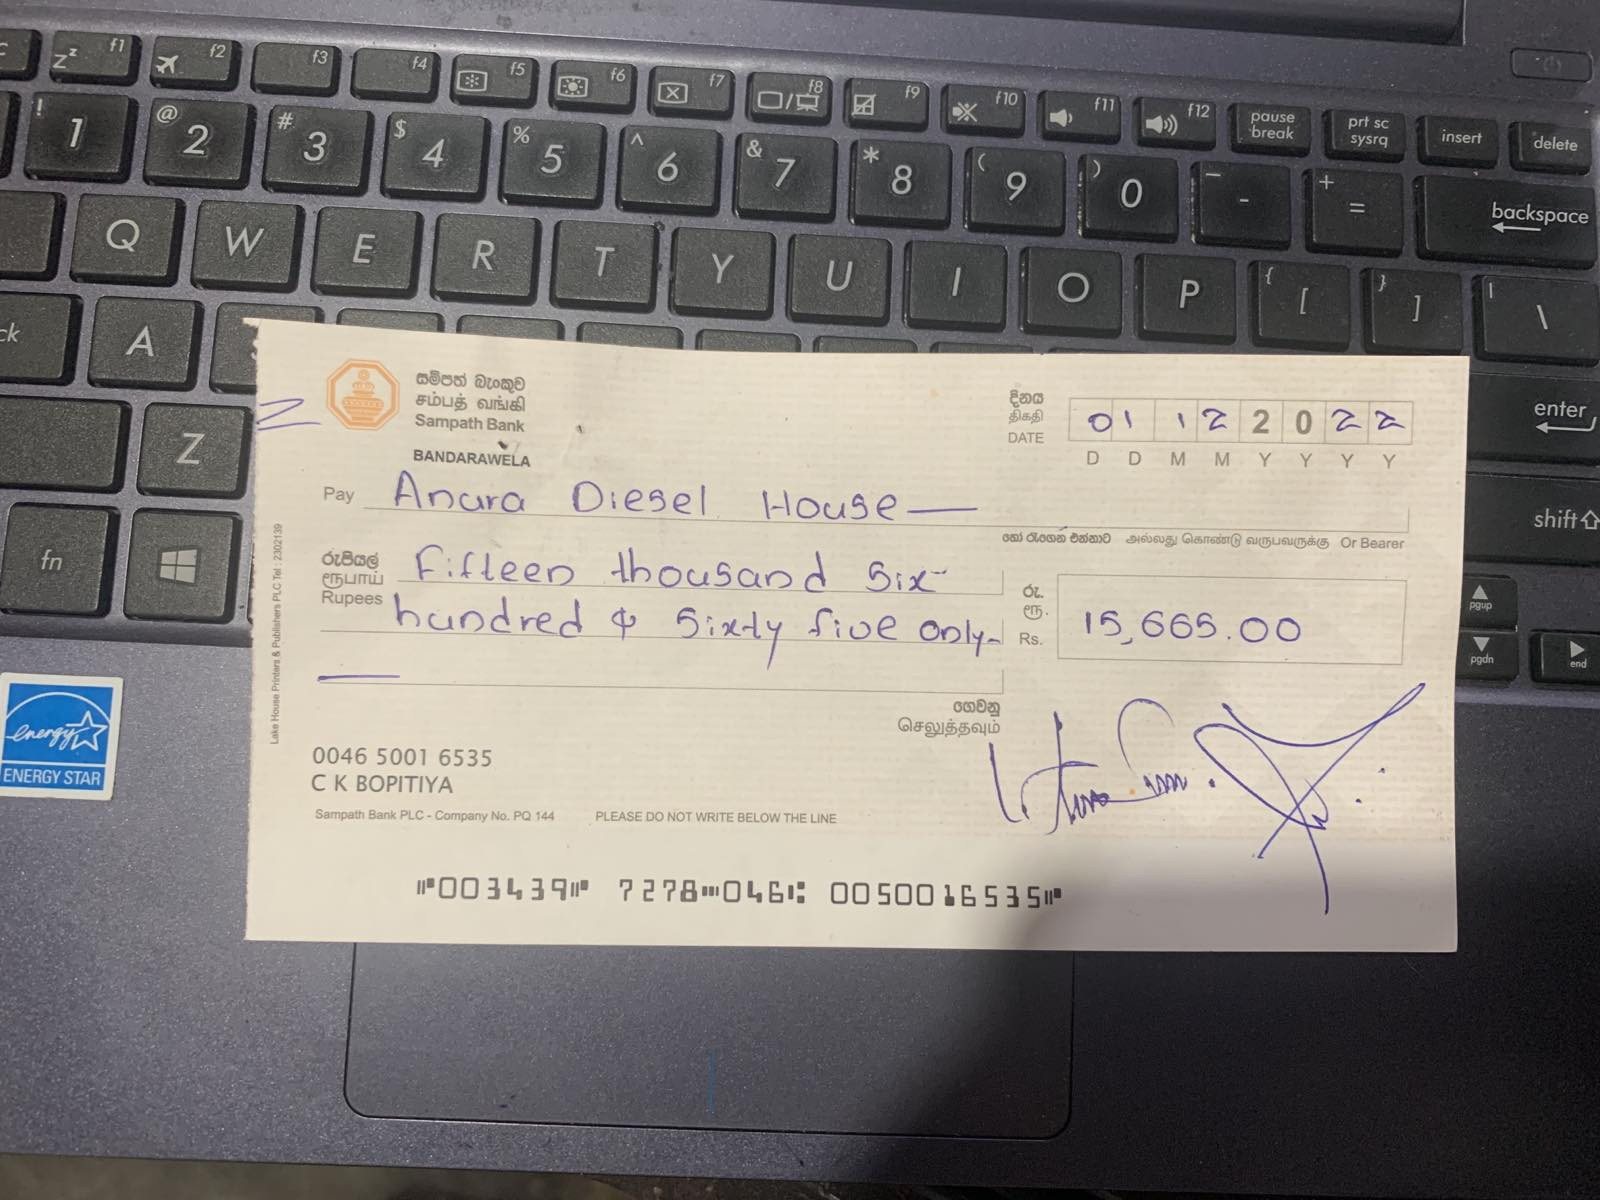 f1 f2 f3 f4 f5 f6 f7 f8 f9 f10 f11 f12 pause break prt sc sysrq insert delete
! 1 @ 2 # 3 $ 4 % 5 ^ 6 & 7 * 8 ( 9 ) 0 _ - + = backspace
Q W E R T Y U I O P { [ } ] | \
A
enter
Z
shift
fn
pgup
pgdn
end
energy
ENERGY STAR
සම්පත් බැංකුව
சம்பத் வங்கி
Sampath Bank
BANDARAWELA
දිනය
திகதி
DATE
01 12 2022
D D M M Y Y Y Y
Pay Anura Diesel House
හෝ රැගෙන එන්නාට அல்லது கொண்டு வருபவருக்கு Or Bearer
රුපියල්
ரூபாய்
Rupees
Fifteen thousand six
hundred & sixty five only
රු.
ரூ.
Rs.
15,665.00
ගෙවනු
செலுத்தவும்
0046 5001 6535
C K BOPITIYA
Sampath Bank PLC - Company No. PQ 144 PLEASE DO NOT WRITE BELOW THE LINE
003439 7278 046 0050016535
Lake House Printers & Publishers PLC Tel : 2302139